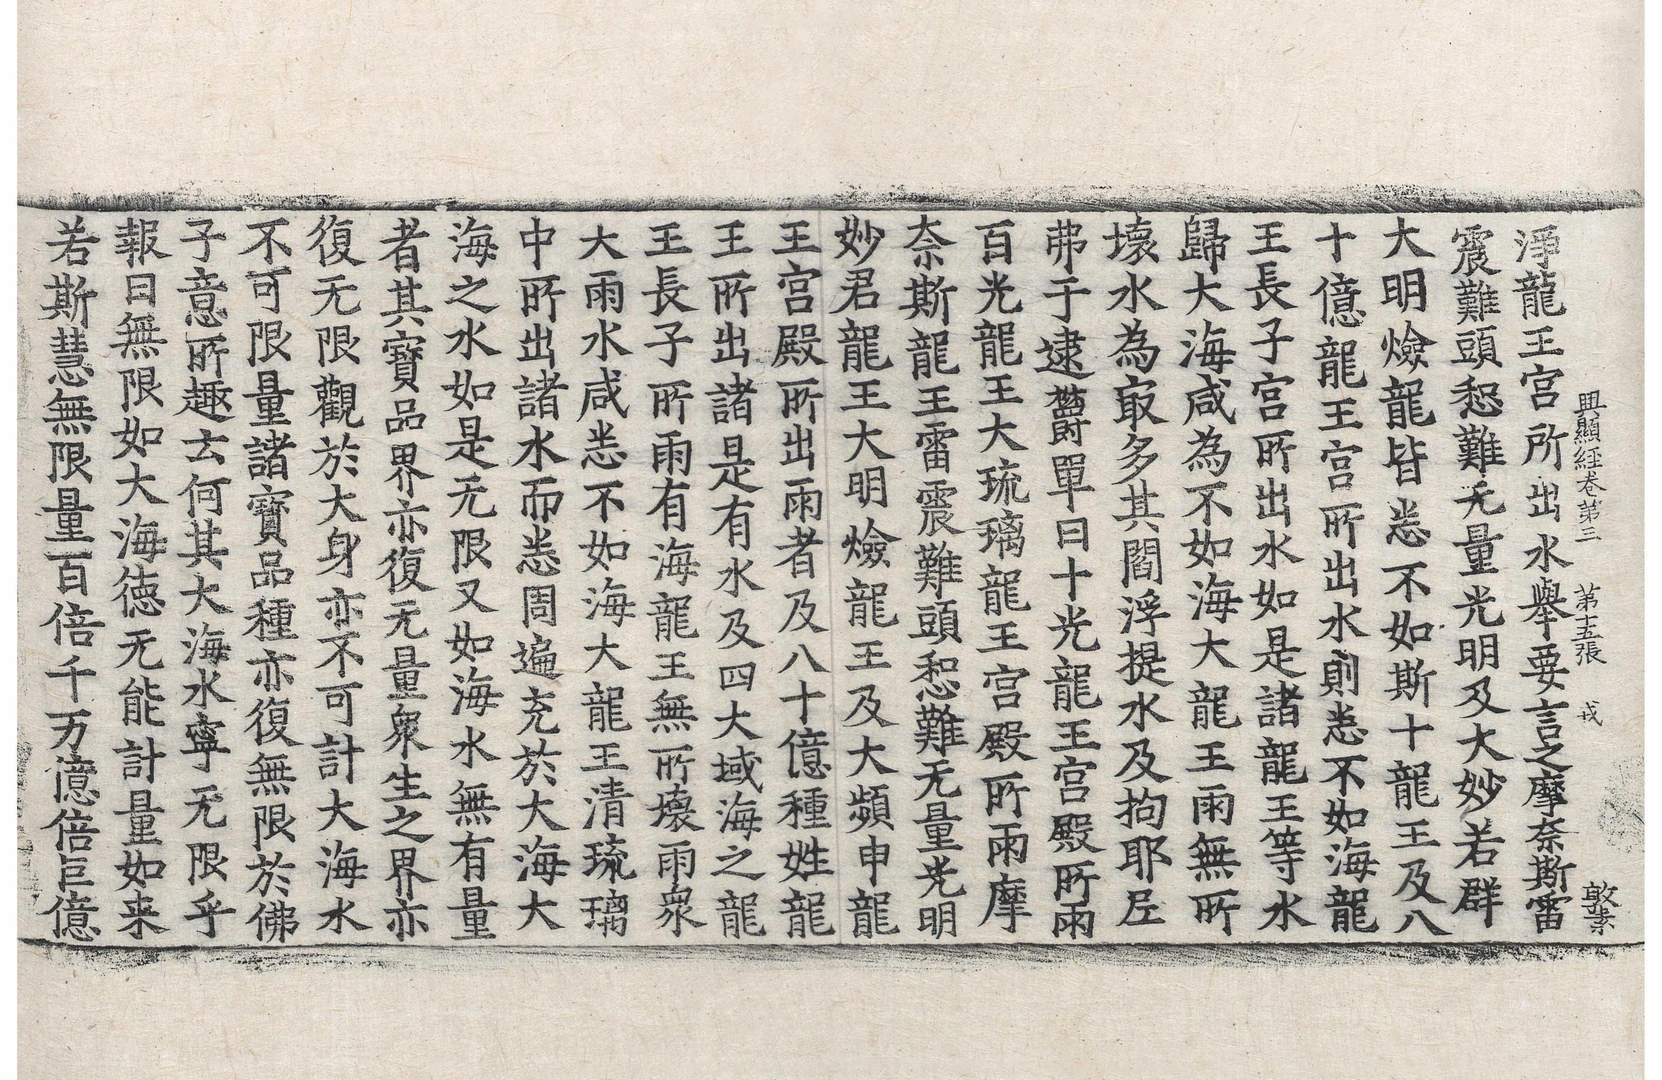 興顯經卷第三 第十五張 戎
淨龍王宮所出水舉要言之摩奈斯雷
震難頭惒難无量光明及大妙若群
大明燄龍皆悉不如斯十龍王及八
十億龍王宮所出水則悉不如海龍
王長子宮所出水如是諸龍王等水
歸大海咸為不如海大龍王雨無所
壞水為㝡多其閻浮提水及拘耶尼
弗于逮欝單曰十光龍王宮殿所雨
百光龍王大琉璃龍王宮殿所雨摩
奈斯龍王雷震難頭惒難无量光明
妙君龍王大明燄龍王及大頻申龍
王宮殿所出雨者及八十億種姓龍
王所出諸是有水及四大域海之龍
王長子所雨有海龍王無所壞雨衆
大雨水咸悉不如海大龍王清琉璃
中所出諸水而悉周遍充於大海大
海之水如是无限又如海水無有量
者其寶品界亦復无量衆生之界亦
復无限觀於大身亦不可計大海水
不可限量諸寶品種亦復無限於佛
子意所趣云何其大海水寧无限乎
報曰無限如大海德无能計量如来
若斯慧無限量百倍千万億倍巨億